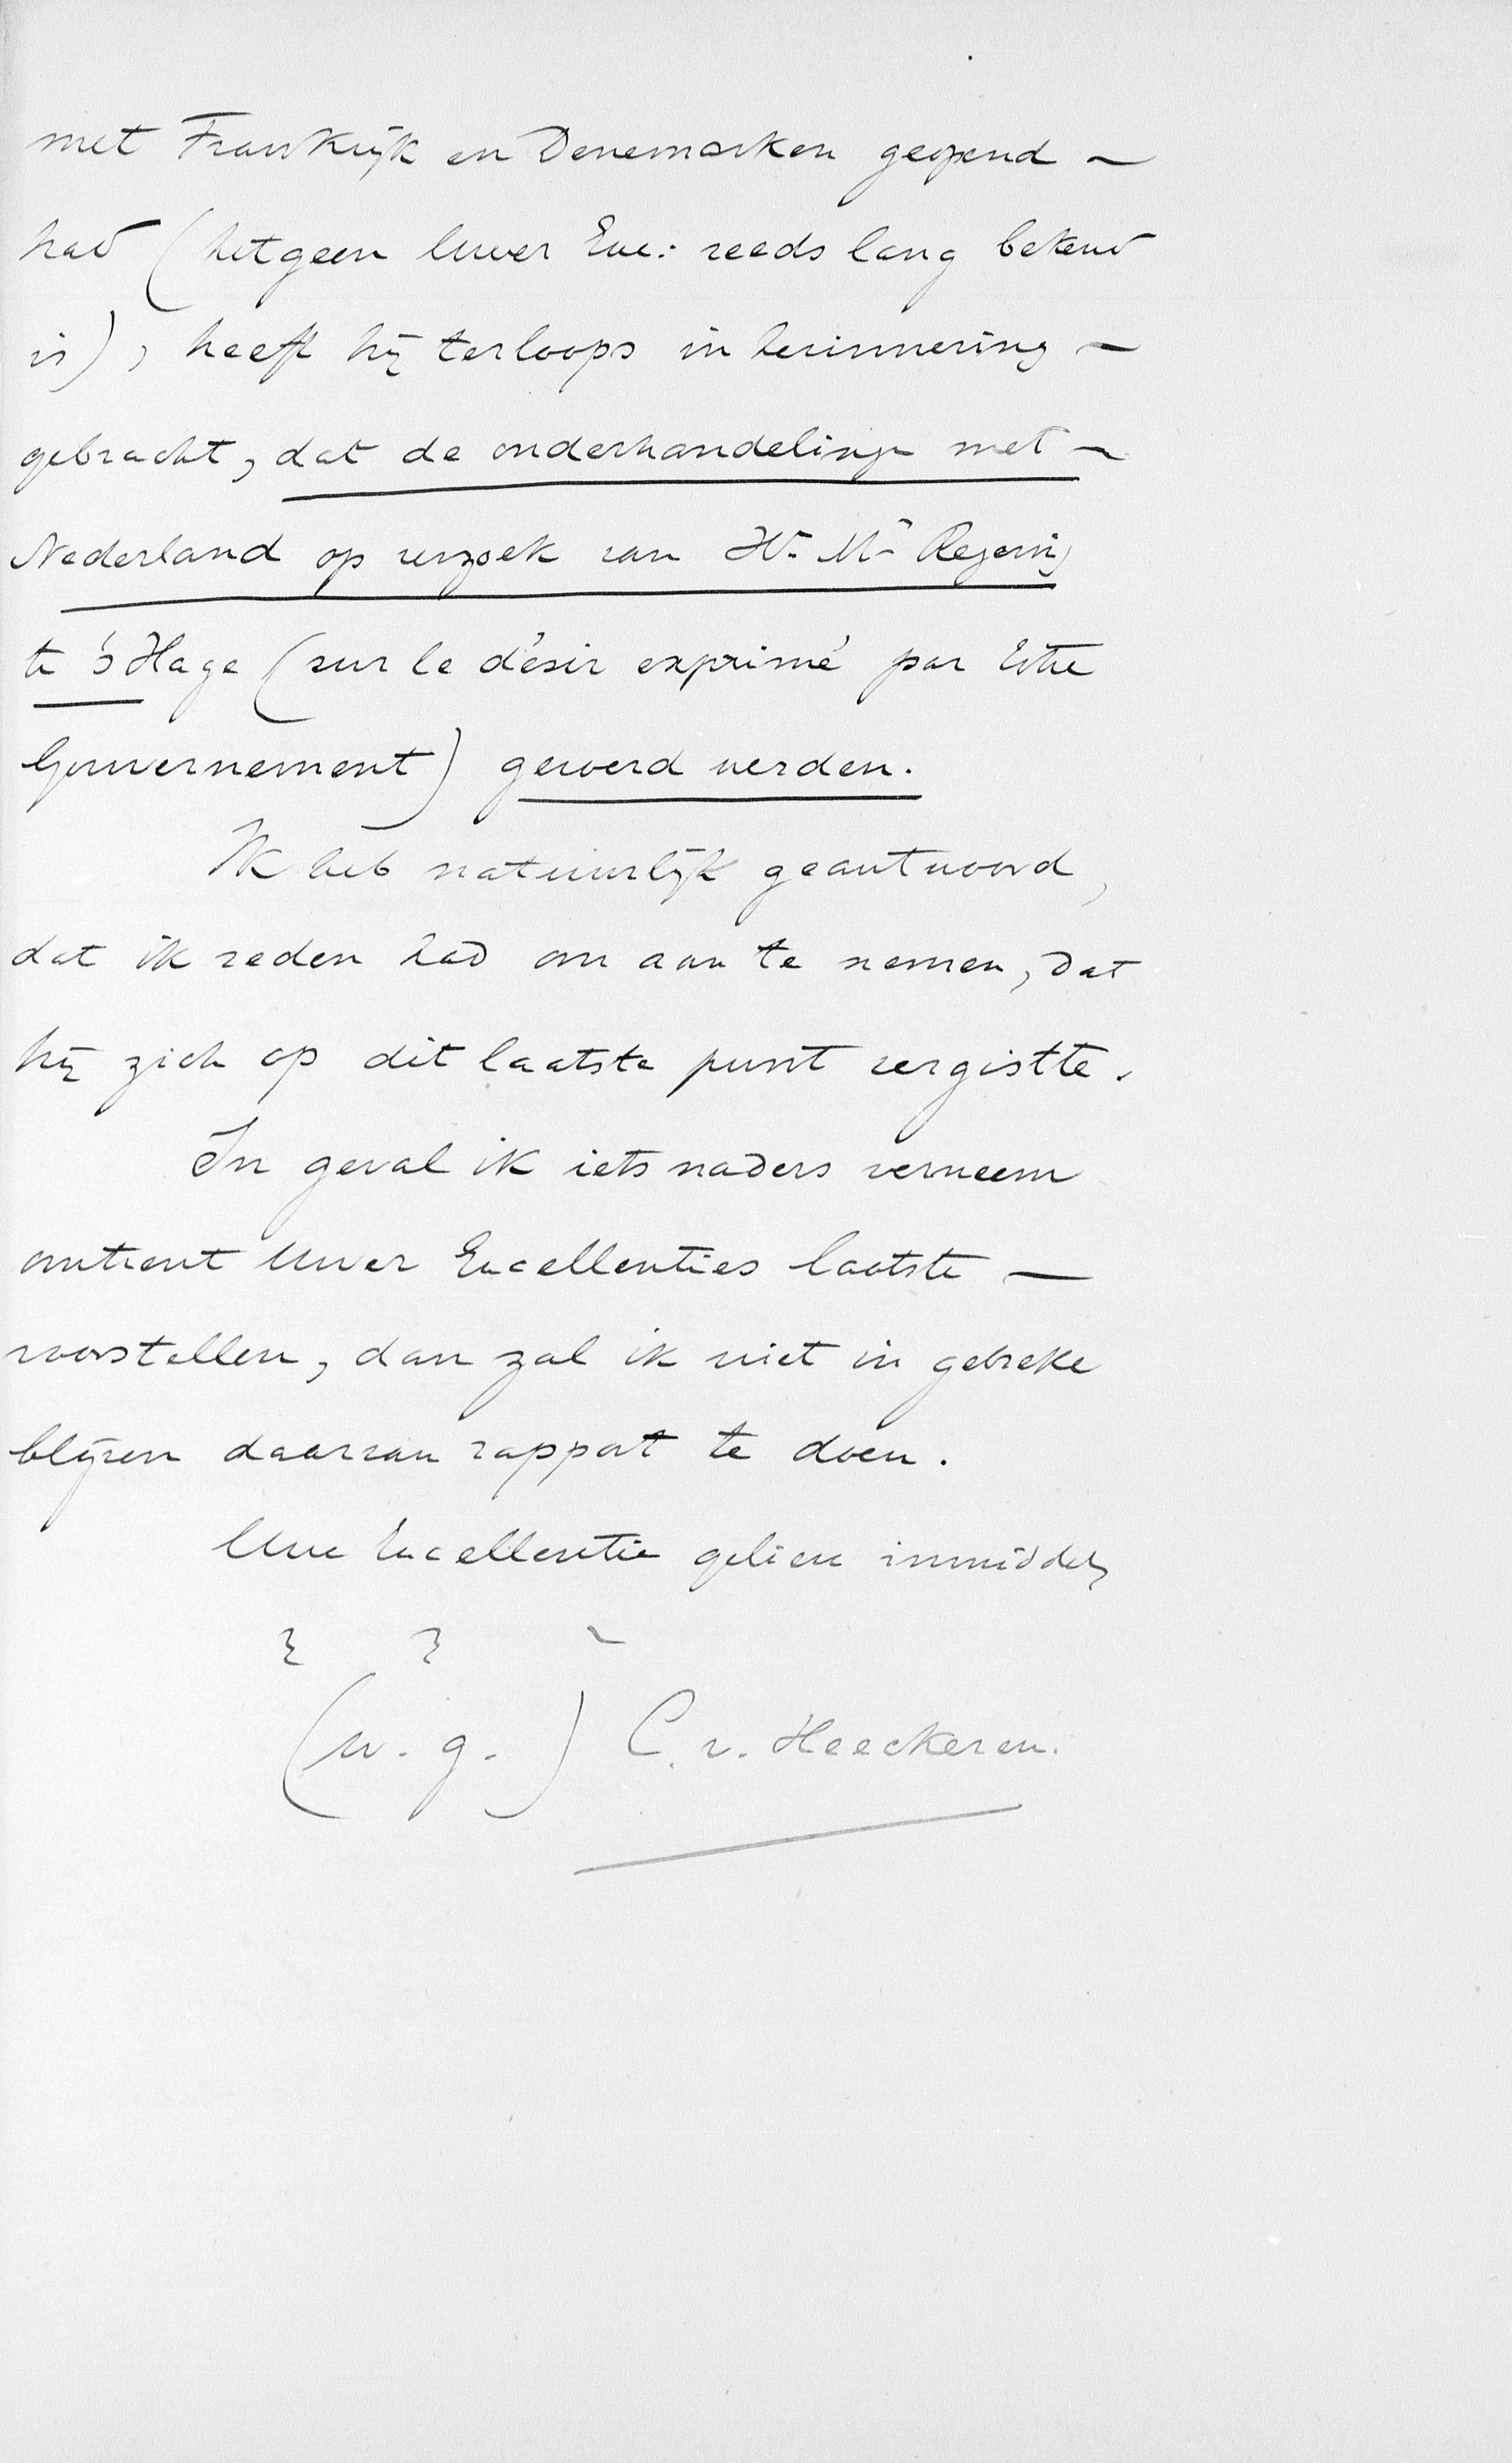 met Frankrijk en Denemarken geopend –
had (hetgeen Uwer Exc: reeds lang bekend
is), heeft hij terloops in herinnering –
gebracht, dat de onderhandelingen met –
Nederland op verzoek van Hr. Ms. Regering
te 's Hage (sur le désir exprimé par Votre
Gouvernement) gevoerd werden.
Ik heb natuurlijk geantwoord,
dat ik reden had om aan te nemen, dat
hij zich op dit laatste punt vergistte.
In geval ik iets naders verneem
omtrent Uwer Excellenties laatste –
voorstellen, dan zal ik niet in gebreke
blijven daarvan rapport te doen.
Uwe Excellentie gelieve inmiddels
(w. g.) C. v. Heeckeren.